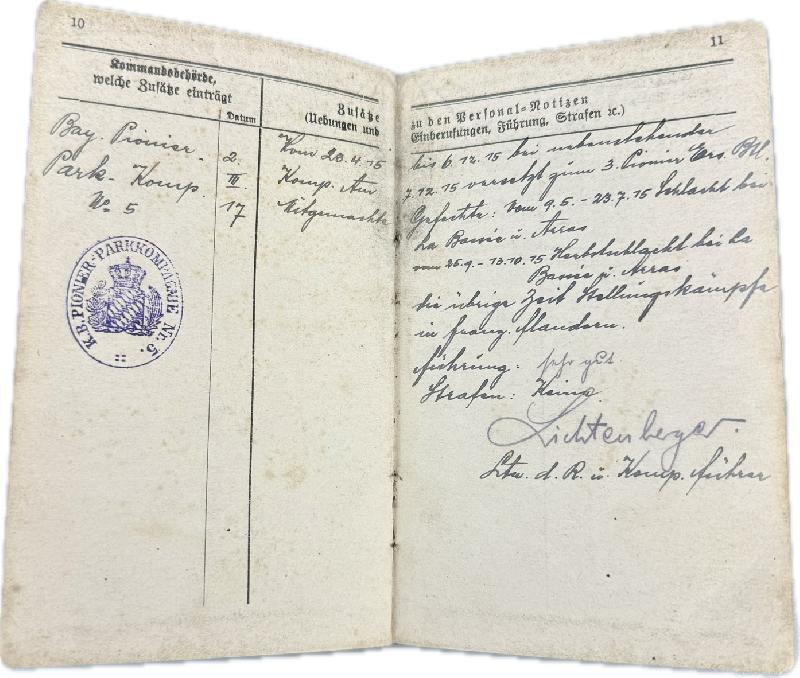 10
Kommandobehörde,
welche Zusätze einträgt
Datum
Zusätze
(Uebungen und
Bay. Pionier-
Park-Komp.
No 5
2.
III
17
Vom 20.4.15
Komp. An
Mitgemachte
K.B. PIONIER-PARKKOMPAGNIE Nr. 5.
11
zu den Personal-Notizen
Einberufungen, Führung, Strafen ꝛc.)
bis 6.12.15 bei nebenstehender
7.12.15 versetzt zum 3. Pionier Ers. Btl.
Gefechte: Vom 9.5. - 23.7.15 Schlacht bei
La Bassée u. Arras
vom 25.9. - 13.10.15 Herbstschlacht bei La
Bassée u. Arras
die übrige Zeit Stellungskämpfe
in franz. Flandern.
Führung: sehr gut
Strafen: Keine.
Lichtenberger.
Ltn. d. R. u. Komp. Führer